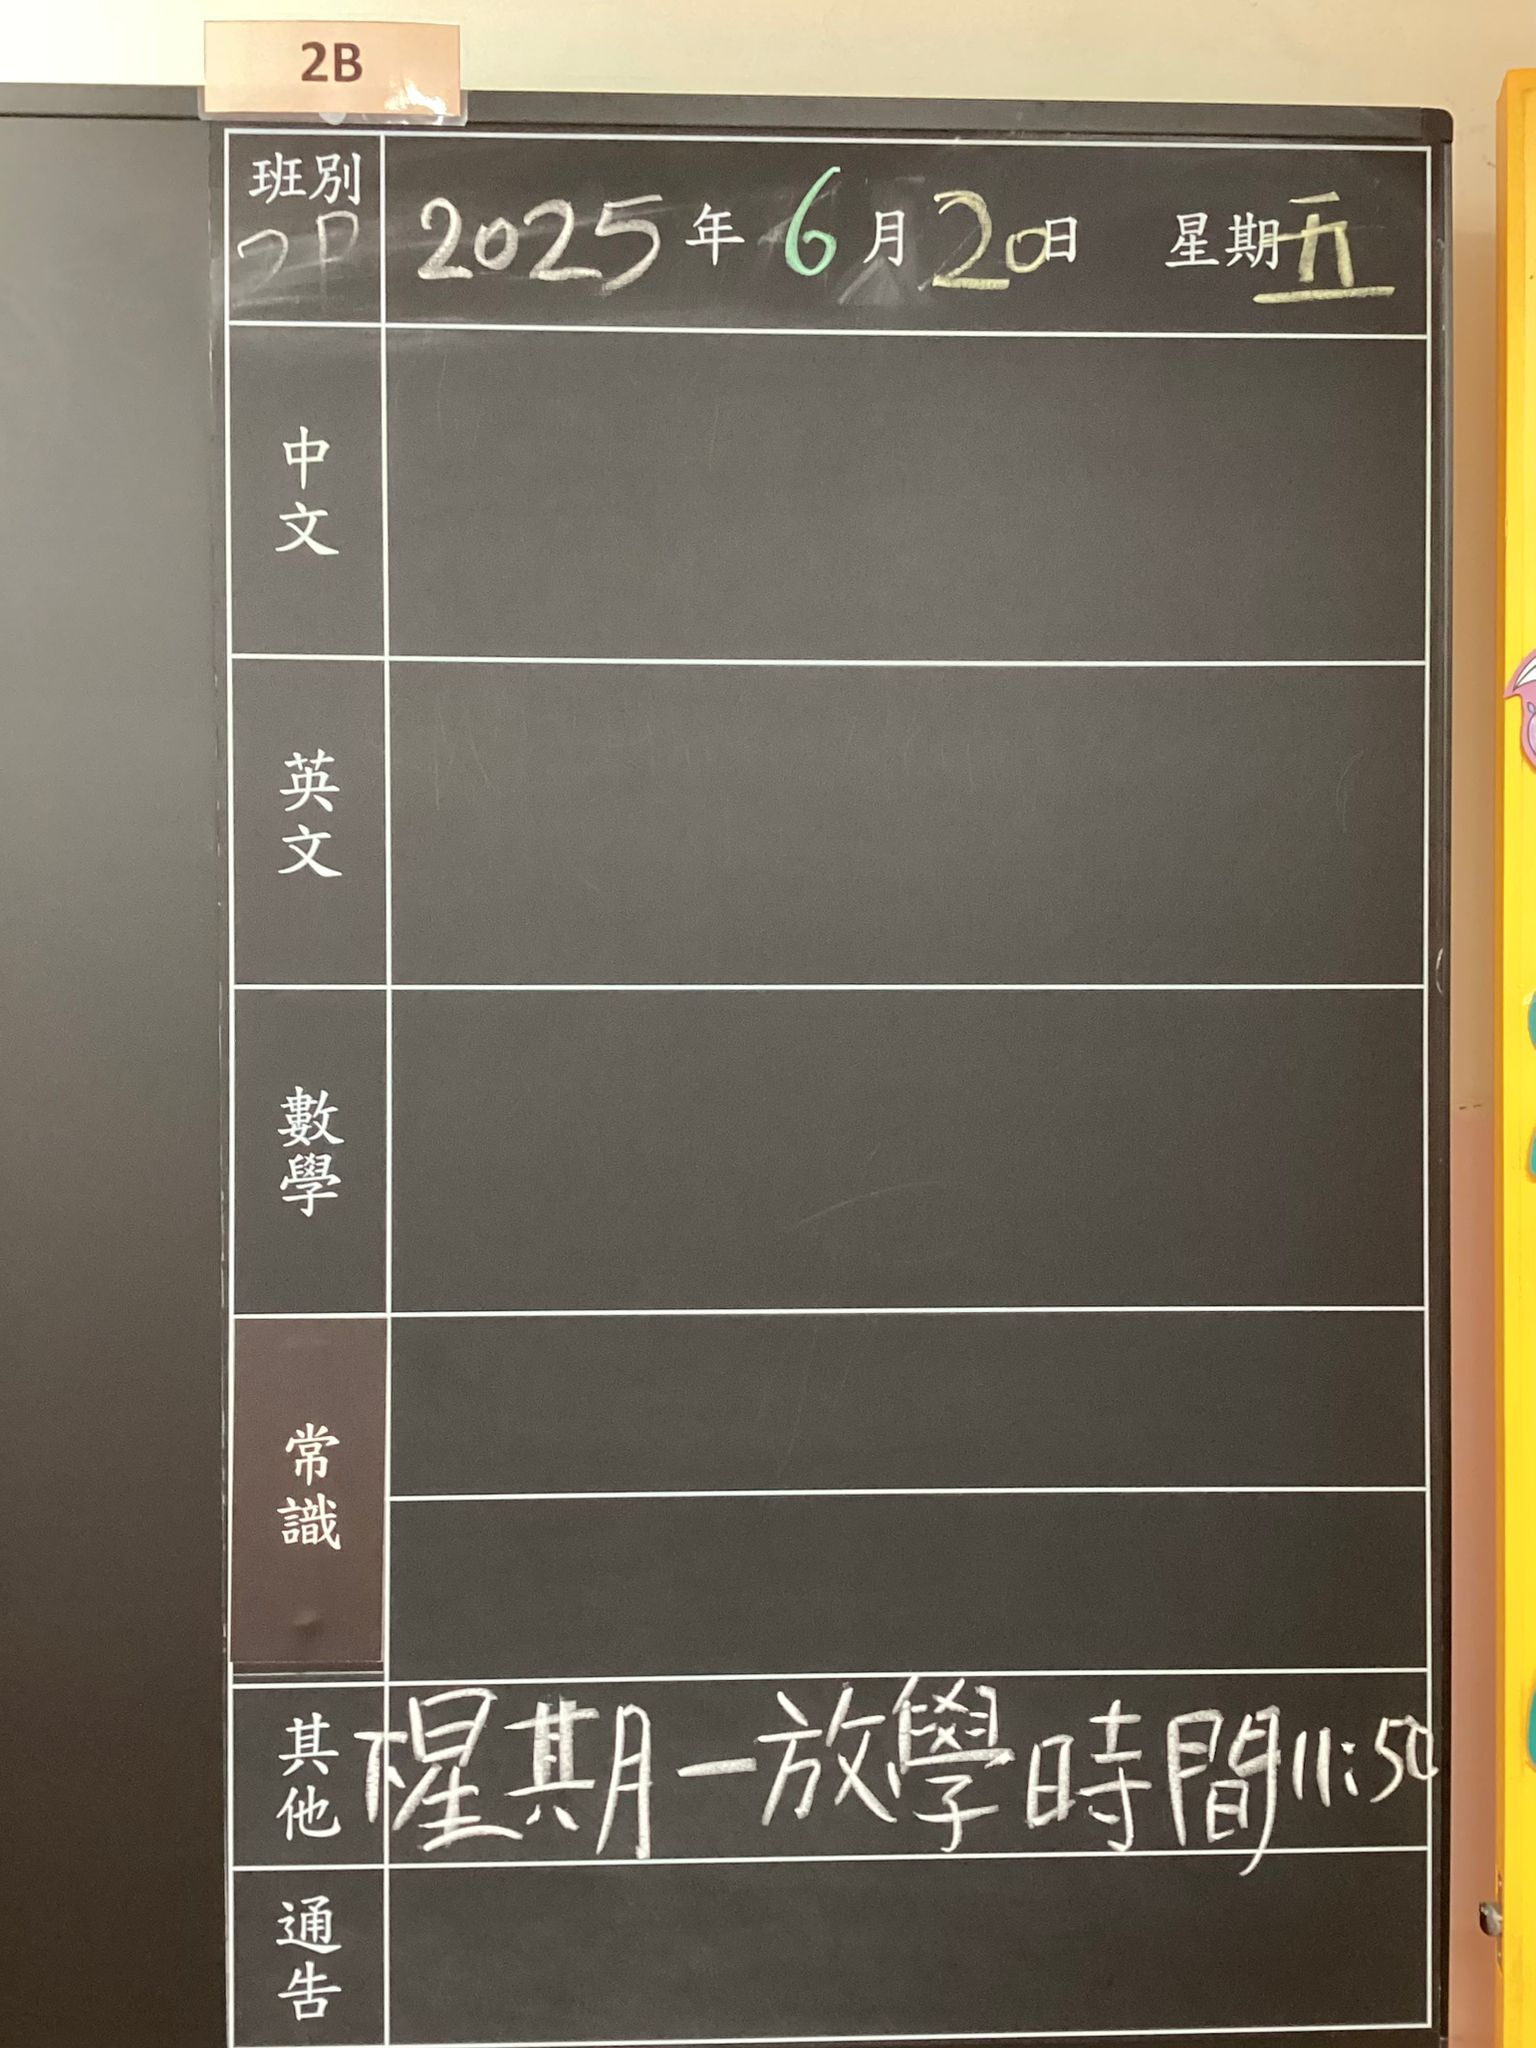 2B
班別 2025年6月20日 星期五
中文
英文
數學
常識
其他 下星期一放學時間11:50
通告